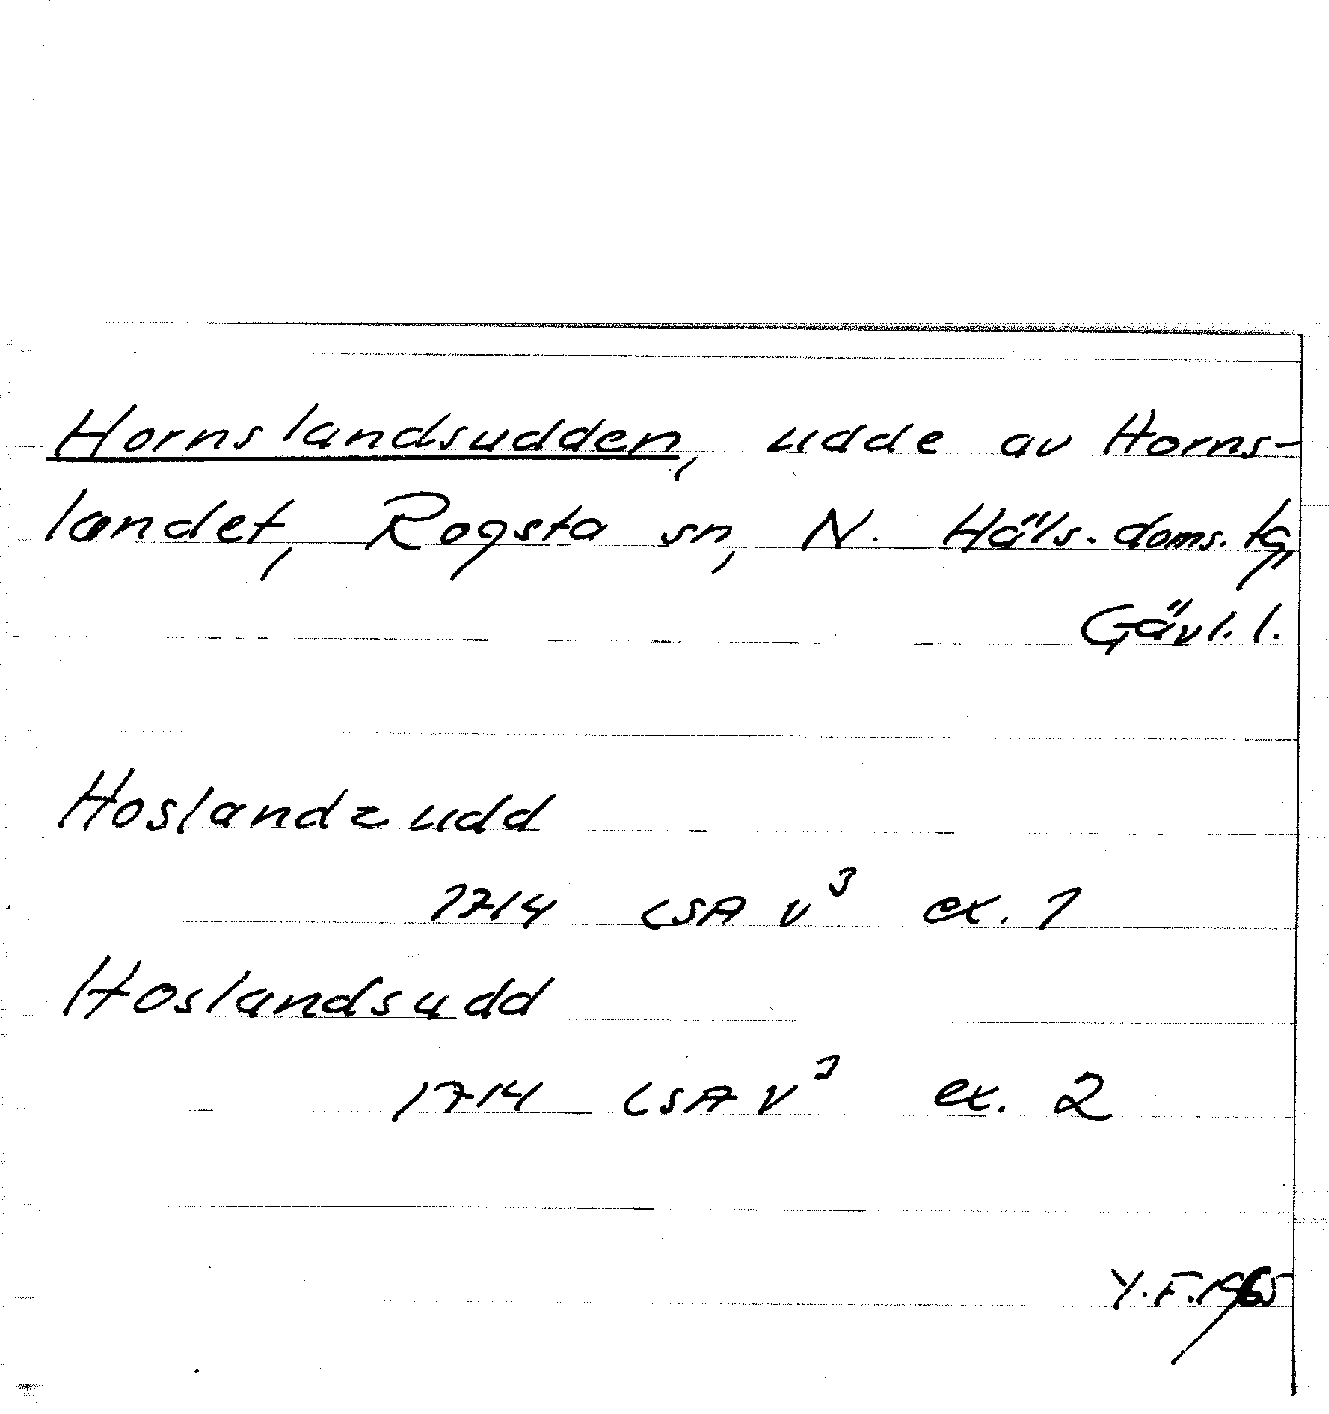 Hornslandsudden, udde av Horns-
landet, Rogsta sn, N. Häls. doms. tg,
Gävl. l.
Hoslandzudd
1714 LSA V³ ex. 1
Hoslandsudd
1714 LSA V³ ex. 2
Y. F. 1965